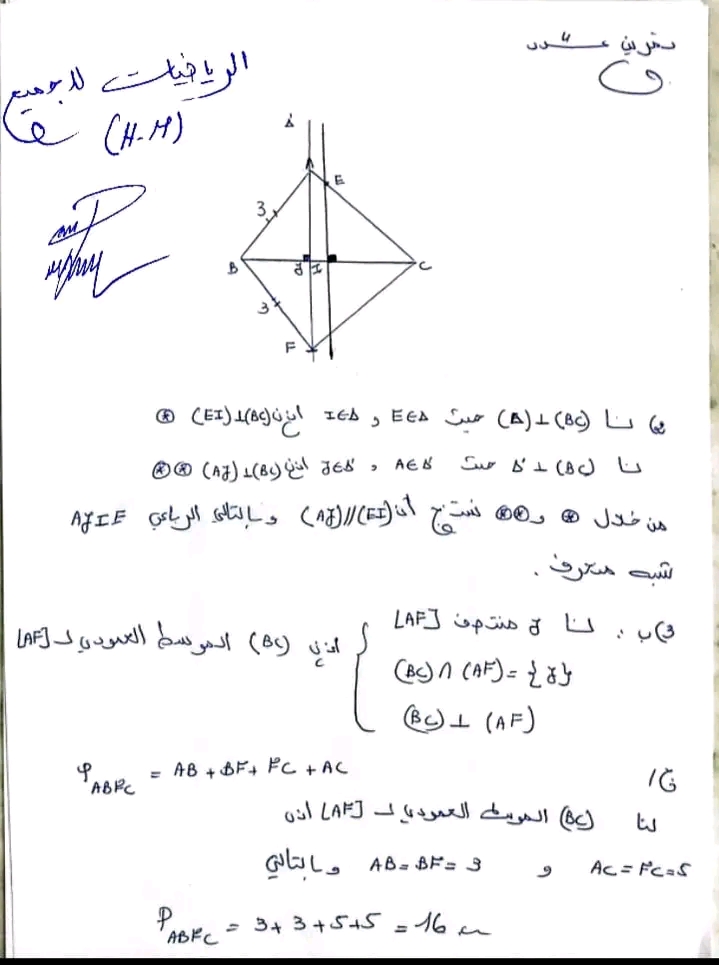 تمرين عــدد 4
الرياضيات للجميع
(H-M)
Δ'
A
E
3
B
J
I
C
3
F
2) لنا (Δ)⊥(BC) حيث E∈Δ و I∈Δ اذن (EI)⊥(BC) ⊛
لنا Δ'⊥(BC) حيث A∈Δ' و J∈Δ' اذن (AJ)⊥(BC) ⊛⊛
من خلال ⊛ و ⊛⊛ نستنتج أن (AJ)//(EI) وبالتالي الرباعي AJIE
شبه منحرف.
3) ب. لنا J منتصف [AF]
(BC)∩(AF)={J}
(BC)⊥(AF)
اذن (BC) الموسط العمودي لـ [AF]
ج/
P ABFC = AB+BF+FC+AC
لنا (BC) الموسط العمودي لـ [AF] اذن
AC=FC=5 و AB=BF=3 وبالتالي
P ABFC = 3+3+5+5 = 16 cm